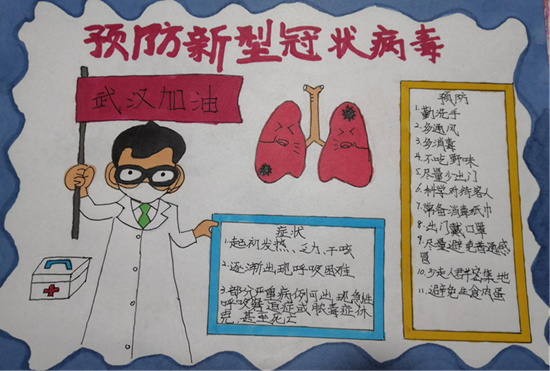 预防新型冠状病毒
武汉加油
症状
1.起初发热、乏力、干咳
2.逐渐出现呼吸困难
3.部分严重病例可出现急性
呼吸窘迫症或脓毒症休
克,甚至死亡
预防
1.勤洗手
2.多通风
3.多消毒
4.不吃野味
5.尽量少出门
6.科学对待客人
7.常备消毒纸巾
8.出门戴口罩
9.尽量避免普通感
冒
10.少人群密集地
11.避免生食肉蛋